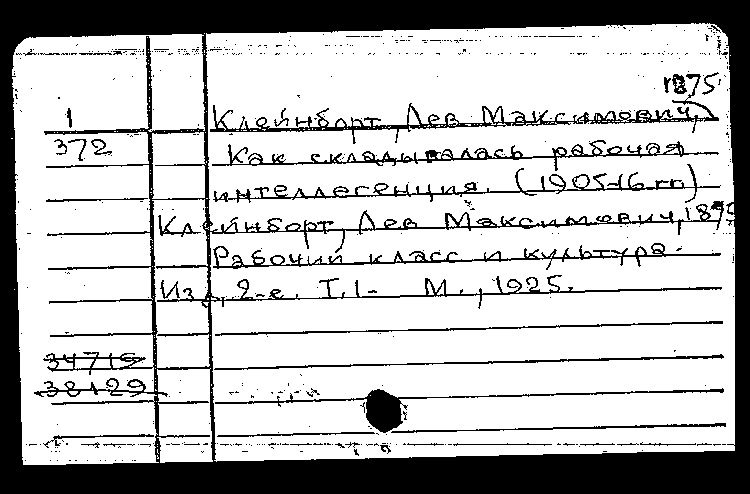 1875
1 Клейнборт, Лев Максимович,
372 Как складывалась рабочая
интеллегенция. (1905-16 гг)
Клейнборт, Лев Максимович, 1875
Рабочий класс и культура.
Изд. 2-е. Т.1- М., 1925.
34715
38129